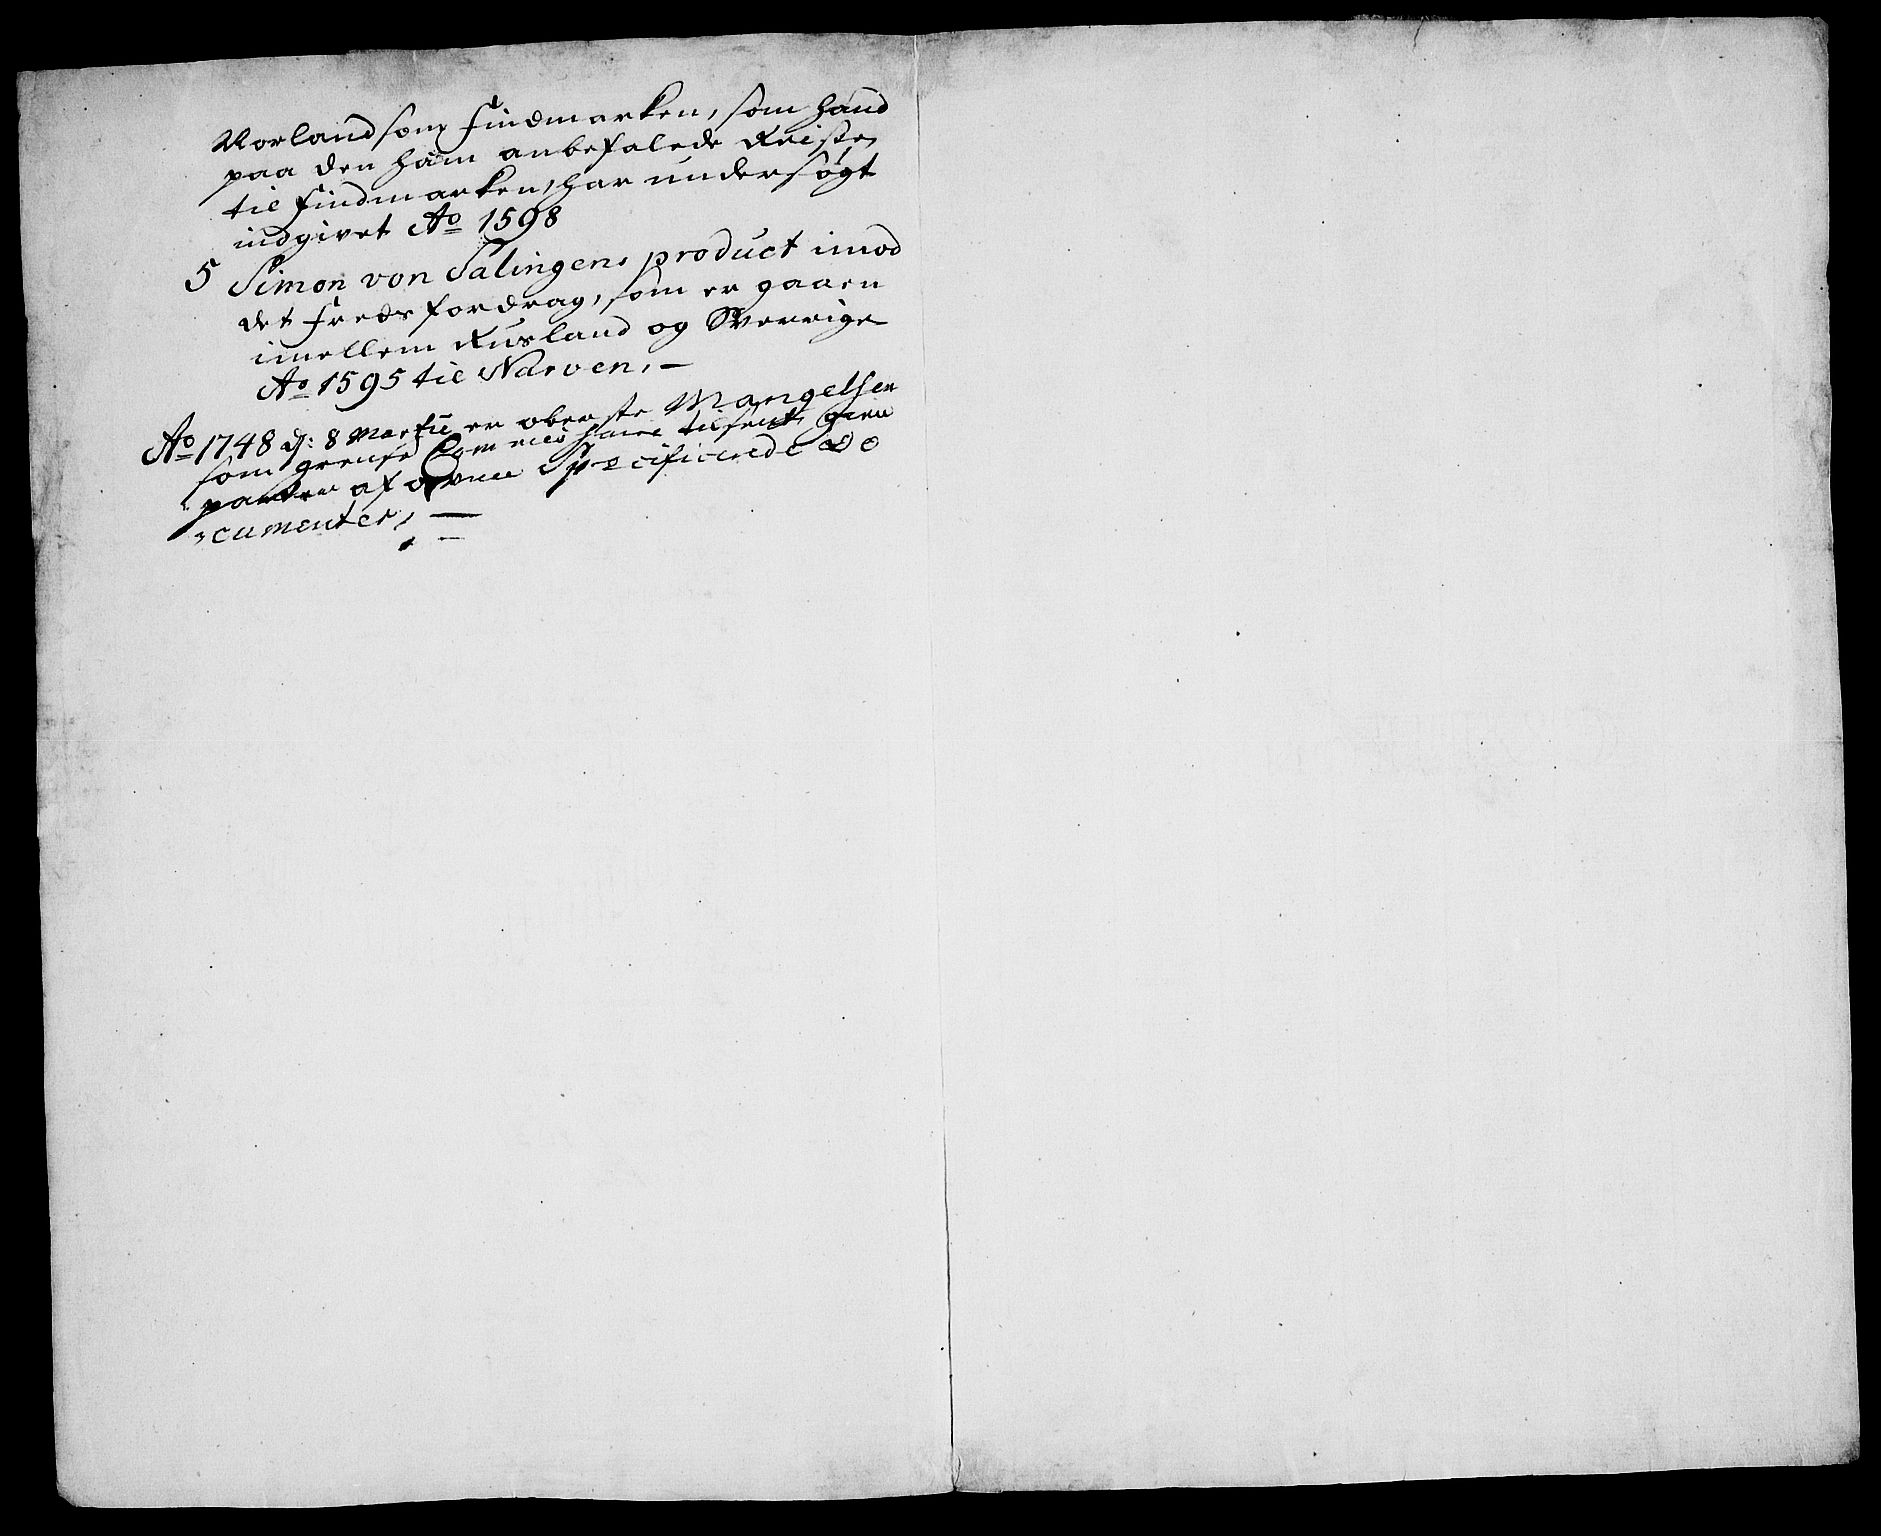 Norland som Findmarken, som hand
paa den ham anbefalede Reise
til Findmarken, har undersøgt
indgivet Ao 1598
5 Simon von Salingens product imod
det Freds fordrag, som er gaaen
imellem Rusland og Sverrige
Ao 1595 til Narven. —
Ao 1748 d: 8 Martii er oberste Mangelsen
som grense tilsent
af Specificerede Do
cumenter, —